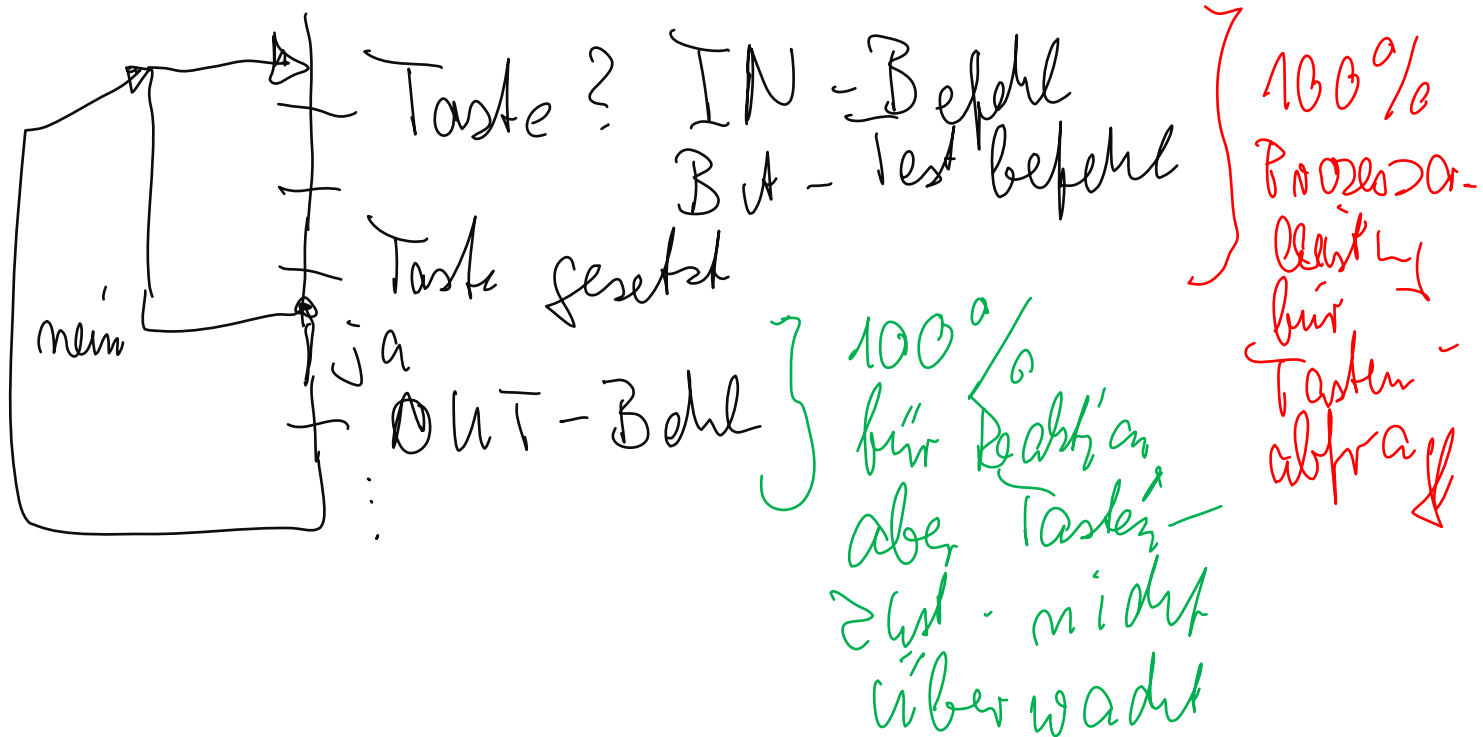 Taste? IN-Befehl
Bit-Testbefehl
Taste gesetzt
nein
ja
OUT-Behl
:
100%
Prozessor-
leistung
für
Tasten-
abfrage
100%
für Reaktion
aber Tasten-
zust. nicht
überwacht